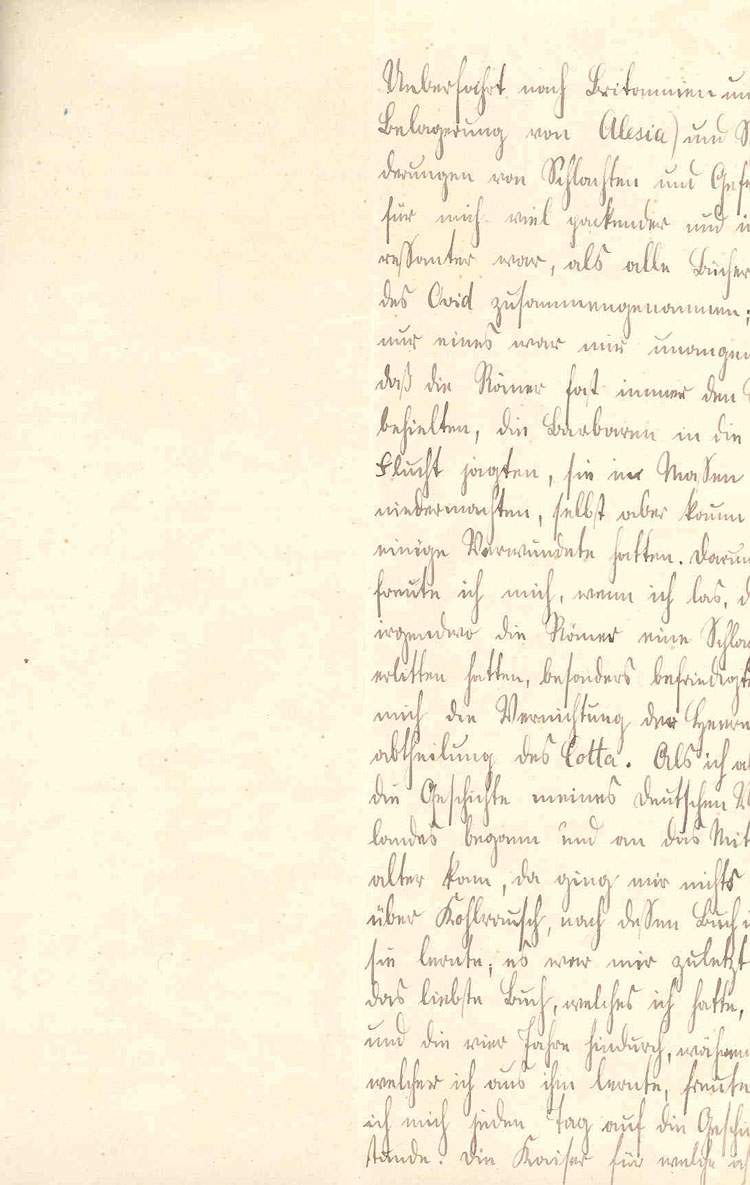 Ueberfahrt nach Britannien un
Belagerung von Alesia) und S
derungen von Schlachten und Gefe
für mich viel packender und in
ressanter war, als alle Bücher
des Ovid zusammengenommen;
nur eines war mir unangen
daß die Römer fast immer den
behielten, die Barbaren in die
Flucht jagten, sie in Massen
niedermachten, selbst aber kaum
einige Verwundete hatten. Darum
freute ich mich, wenn ich las, d
irgendwo die Römer eine Schla
erlitten hatten, besonders befriedigte
mich die Vernichtung der Heeres
abtheilung des Cotta. Als ich a
die Geschichte meines deutschen V
landes begann und an das Mit
alter kam, da ging mir nichts
über Kohlrausch, nach dessen Buch i
sie lernte; es war mir zuletzt
das liebste Buch, welches ich hatte,
und die vier Jahre hindurch, während
welcher ich aus ihm lernte, freute
ich mich jeden Tag auf die Geschi
stunde. Die Kaiser für welche ich